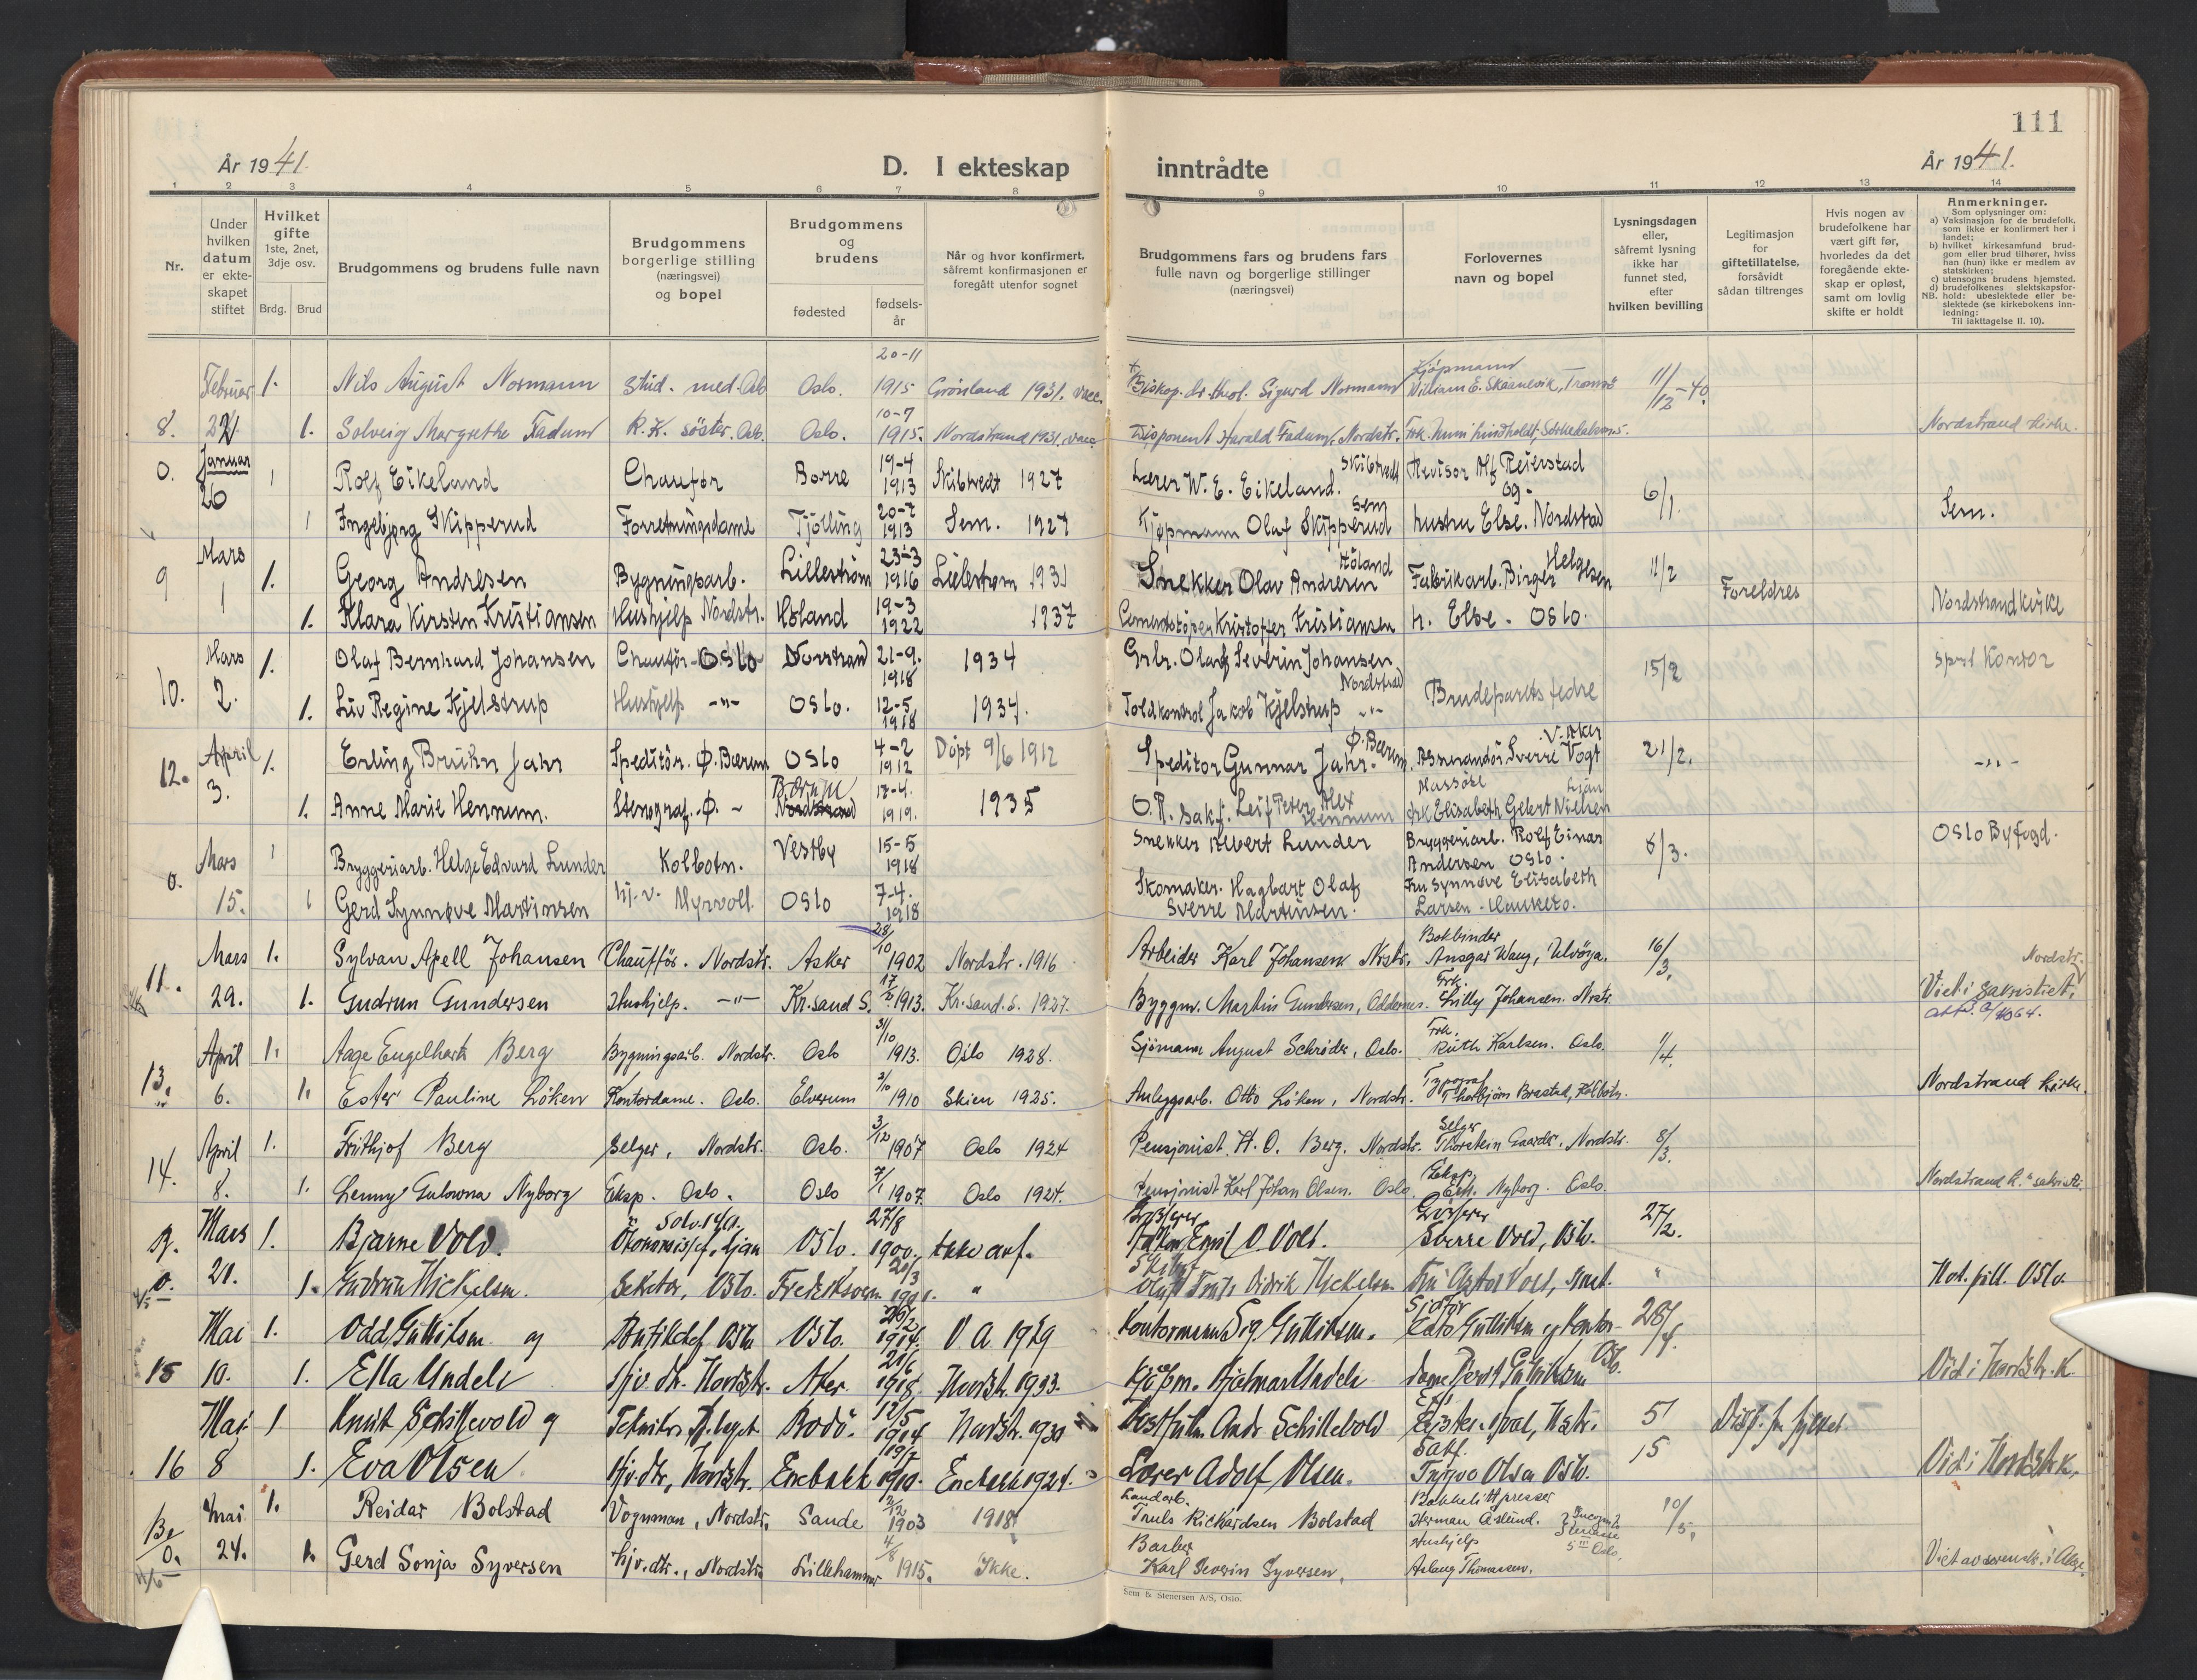 111
År 1941.
D. I ekteskap inntrådte
År 1941.
1 2 3 4 5 6 7 8 9 10 11 12 13 14
Nr.
Under hvilken datum er ekteskapet stiftet
Hvilket gifte 1ste, 2net, 3dje osv.
Brdg. Brud
Brudgommens og brudens fulle navn
Brudgommens borgerlige stilling (næringsvei) og bopel
Brudgommens og brudens
fødested
fødselsår
Når og hvor konfirmert, såfremt konfirmasjonen er foregått utenfor sognet
Brudgommens fars og brudens fars fulle navn og borgerlige stillinger (næringsvei)
Forlovernes navn og bopel
Lysningsdagen eller, såfremt lysning ikke har funnet sted, efter hvilken bevilling
Legitimasjon for giftetillatelse, forsåvidt sådan tiltrenges
Hvis nogen av brudefolkene har vært gift før, hvorledes da det foregående ekteskap er opløst, samt om lovlig skifte er holdt
Anmerkninger.
Som oplysninger om:
a) Vaksinasjon for de brudefolk, som ikke er konfirmert her i landet;
b) hvilket kirkesamfund brudgom eller brud tilhører, hviss han (hun) ikke er medlem av statskirken;
c) utensogns brudens hjemsted.
d) brudefolkenes slektskapsforhold: ubeslektede eller beslektede (se kirkebokens innledning:
NB. Til iakttagelse II. 10).
Februar 1. Nils August Normann stud. med. Oslo Oslo. 20-11 1915 Grønland 1931. vacc. Biskop. dr. theol. Sigurd Normann Kjøpmann William E. Skaanevik, Tromsø 11/12-40.
8. 22 1. Solveig Margrethe Fadum R.K. søster. Oslo. Oslo. 10-7 1915. Nordstrand 1931. vacc. Disponent Harald Fadum, Nordstr. Nordstrand Kirke.
0. Januar 26 1 Rolf Eikeland Chauffør Borre 19-4 1913 Skibtvedt 1927 Lærer W. E. Eikeland. Skibtvedt Revisor Alf Reierstad og 6/1.
1 Ingebjørg Skipperud Forretningsdame Tjølling 20-2 1913 Sem. 1927 Kjøpmann Olaf Skipperud Sem hustru Else. Nordstrand Sem.
9 Mars 1 1. Georg Andresen Bygningsarb. Lillestrøm 23-3 1916 Lillestrøm 1931 Snekker Olav Andresen Høland Fabrikarb. Birger Helgesen 11/2 Foreldres
1. Klara Kirsten Kristiansen Hushjelp Nordstr. Høland 19-3 1922 1937 Cementstøper Kristoffer Kristiansen h. Else - Oslo. Nordstrand kirke
10. Mars 2. 1. Olaf Bernhard Johansen Chauffør - Oslo Norstrand 21-9. 1918 1934 Grbr. Olaf Severin Johansen Nordstrand Brudeparets fedre 15/2 Kontor
1. Liv Regine Kjelstrup Hushjelp -"- Oslo. 12-5 1918 1934. Toldkontrol Jakob Kjelstrup -"-
12. April 3. 1. Erling Bruun Jahr Speditør. Ø. Bærum Oslo 4-2 1912 Døpt 9/6 1912 Speditor Gunnar Jahr. Ø. Bærum. Sverre Vogt V. Aker 21/2. -"-
1. Anne Marie Hennum. Stenograf. Ø. - Bærum 17-4. 1919. 1935 O.R. sakf. Leif Peter Alex Hennum Massøse frk Elisabeth Gelert Nielsen Ljan
0. Mars 15. 1 Bryggeriarb. Helge Edvard Lunder Kolbotn. Vestby 15-5 1918 Snekker Albert Lunder Bryggeriarb. Rolf Einar Andersen Oslo. 8/3. Oslo Byfogd.
1 Gerd Synnøve Martinsen hj. v. Myrvoll Oslo 7-4. 1918 Skomaker. Hagbart Olaf Sverre Martinsen. Fru Synnøve Elisabeth Larsen - Hauketo.
11. Mars 29. 1. Sylvan Apell Johansen Chauffør. Nordstr. Asker 28/10 1902 Nordstr. 1916 Arbeider Karl Johansen Nrstr. Bokbinder Ansgar Waug, Ulvøya. 16/3.
1. Gudrun Gundersen Hushjelp. -"- Kr.sand S. 1913. Kr.sand. S. 1927. Byggm. Martin Gundersen, Frk. Lilly Johansen. Nrstr. Viet i sakristiet, Nordstr.
13. April 6. 1. Aage Engelhart Berg Bygningsarb. Nordstr. Oslo 31/10 1913. Oslo 1928. Sjømann August Schrøder, Oslo. Frk. Ruth Karlsen. Oslo. 1/4.
1. Ester Pauline Løken Kontordame. Oslo. Elverum 2/10 1910 Skien 1925. Anleggsarb. Otto Løken, Nordstr. Typograf Thorbjørn Brastad, Kolbotn. Nordstrand kirke.
14. April 8. 1. Frithjof Berg Selger, Nordstr. Oslo. 3/12 1907 Oslo 1924 Pensjonist H. O. Berg. Nordstr. Selger Thorstein Gaarder, Nordstr. 8/3.
1. Lenny Gulowna Nyborg Eksp. Oslo. Oslo 7/1 1907. Oslo 1924. Pensjonist Karl Johan Olsen. Oslo. Eksp. Nyborg. Oslo. Nordstrand K. sakristi.
Mars 20. 1. Bjarne Vold. Økonomisjef, Ljan Oslo. 27/8 1900. Ikke anf. Emil O. Vold. Grosserer Sverre Vold, Oslo. 27/2.
0. 1. Gudrun Mickelsen. Sekretær, Oslo. Fredriksværn Didrik Mickelsen Vold, Nord. " Not. publ. Oslo.
15 Mai 10. 1. Odd Gulliksen og Butikchef Oslo Oslo. 1914. V. A. 1929 Kontormann Sig. Gulliksen. Gulliksen og Kontor- 28/4.
1. Ella Undeli Hjv. dtr. Nordstr. Aker 1918. Nordstr. 1933. Kjøpm. Hjalmar Undeli dame Gerd Gulliksen Oslo. Vid i Nordstr. K.
16 Mai 8 1 Knut Schillevold og Bodø. 12/5 1904 Nordstr. 1930 Andr Schillevold Nstr. 5/5 Disp. fra fylket
1. Eva Olsen Hjv. dtr, Nordstr. Enebakk 1910. Enebakk 1924. Lærer Adolf Olsen. Sakf. Trygve Olsen Oslo. Vid i Nordstr. k.
Mai 24. 1. Reidar Bolstad Vognman, Nordstr. Sande 2/12 1903 1918 Landarb. Truls Rickardsen Bolstad Bakkelittpresser Herman Åslund. 10/5.
0. 1. Gerd Sonja Syversen Hjv. dtr., Nordstr. Lillehammer 4/8 1915. Ikke. Barber Karl Severin Syversen, Hushjelp Aslaug Thomassen.
Sem & Stenersen A/S, Oslo.